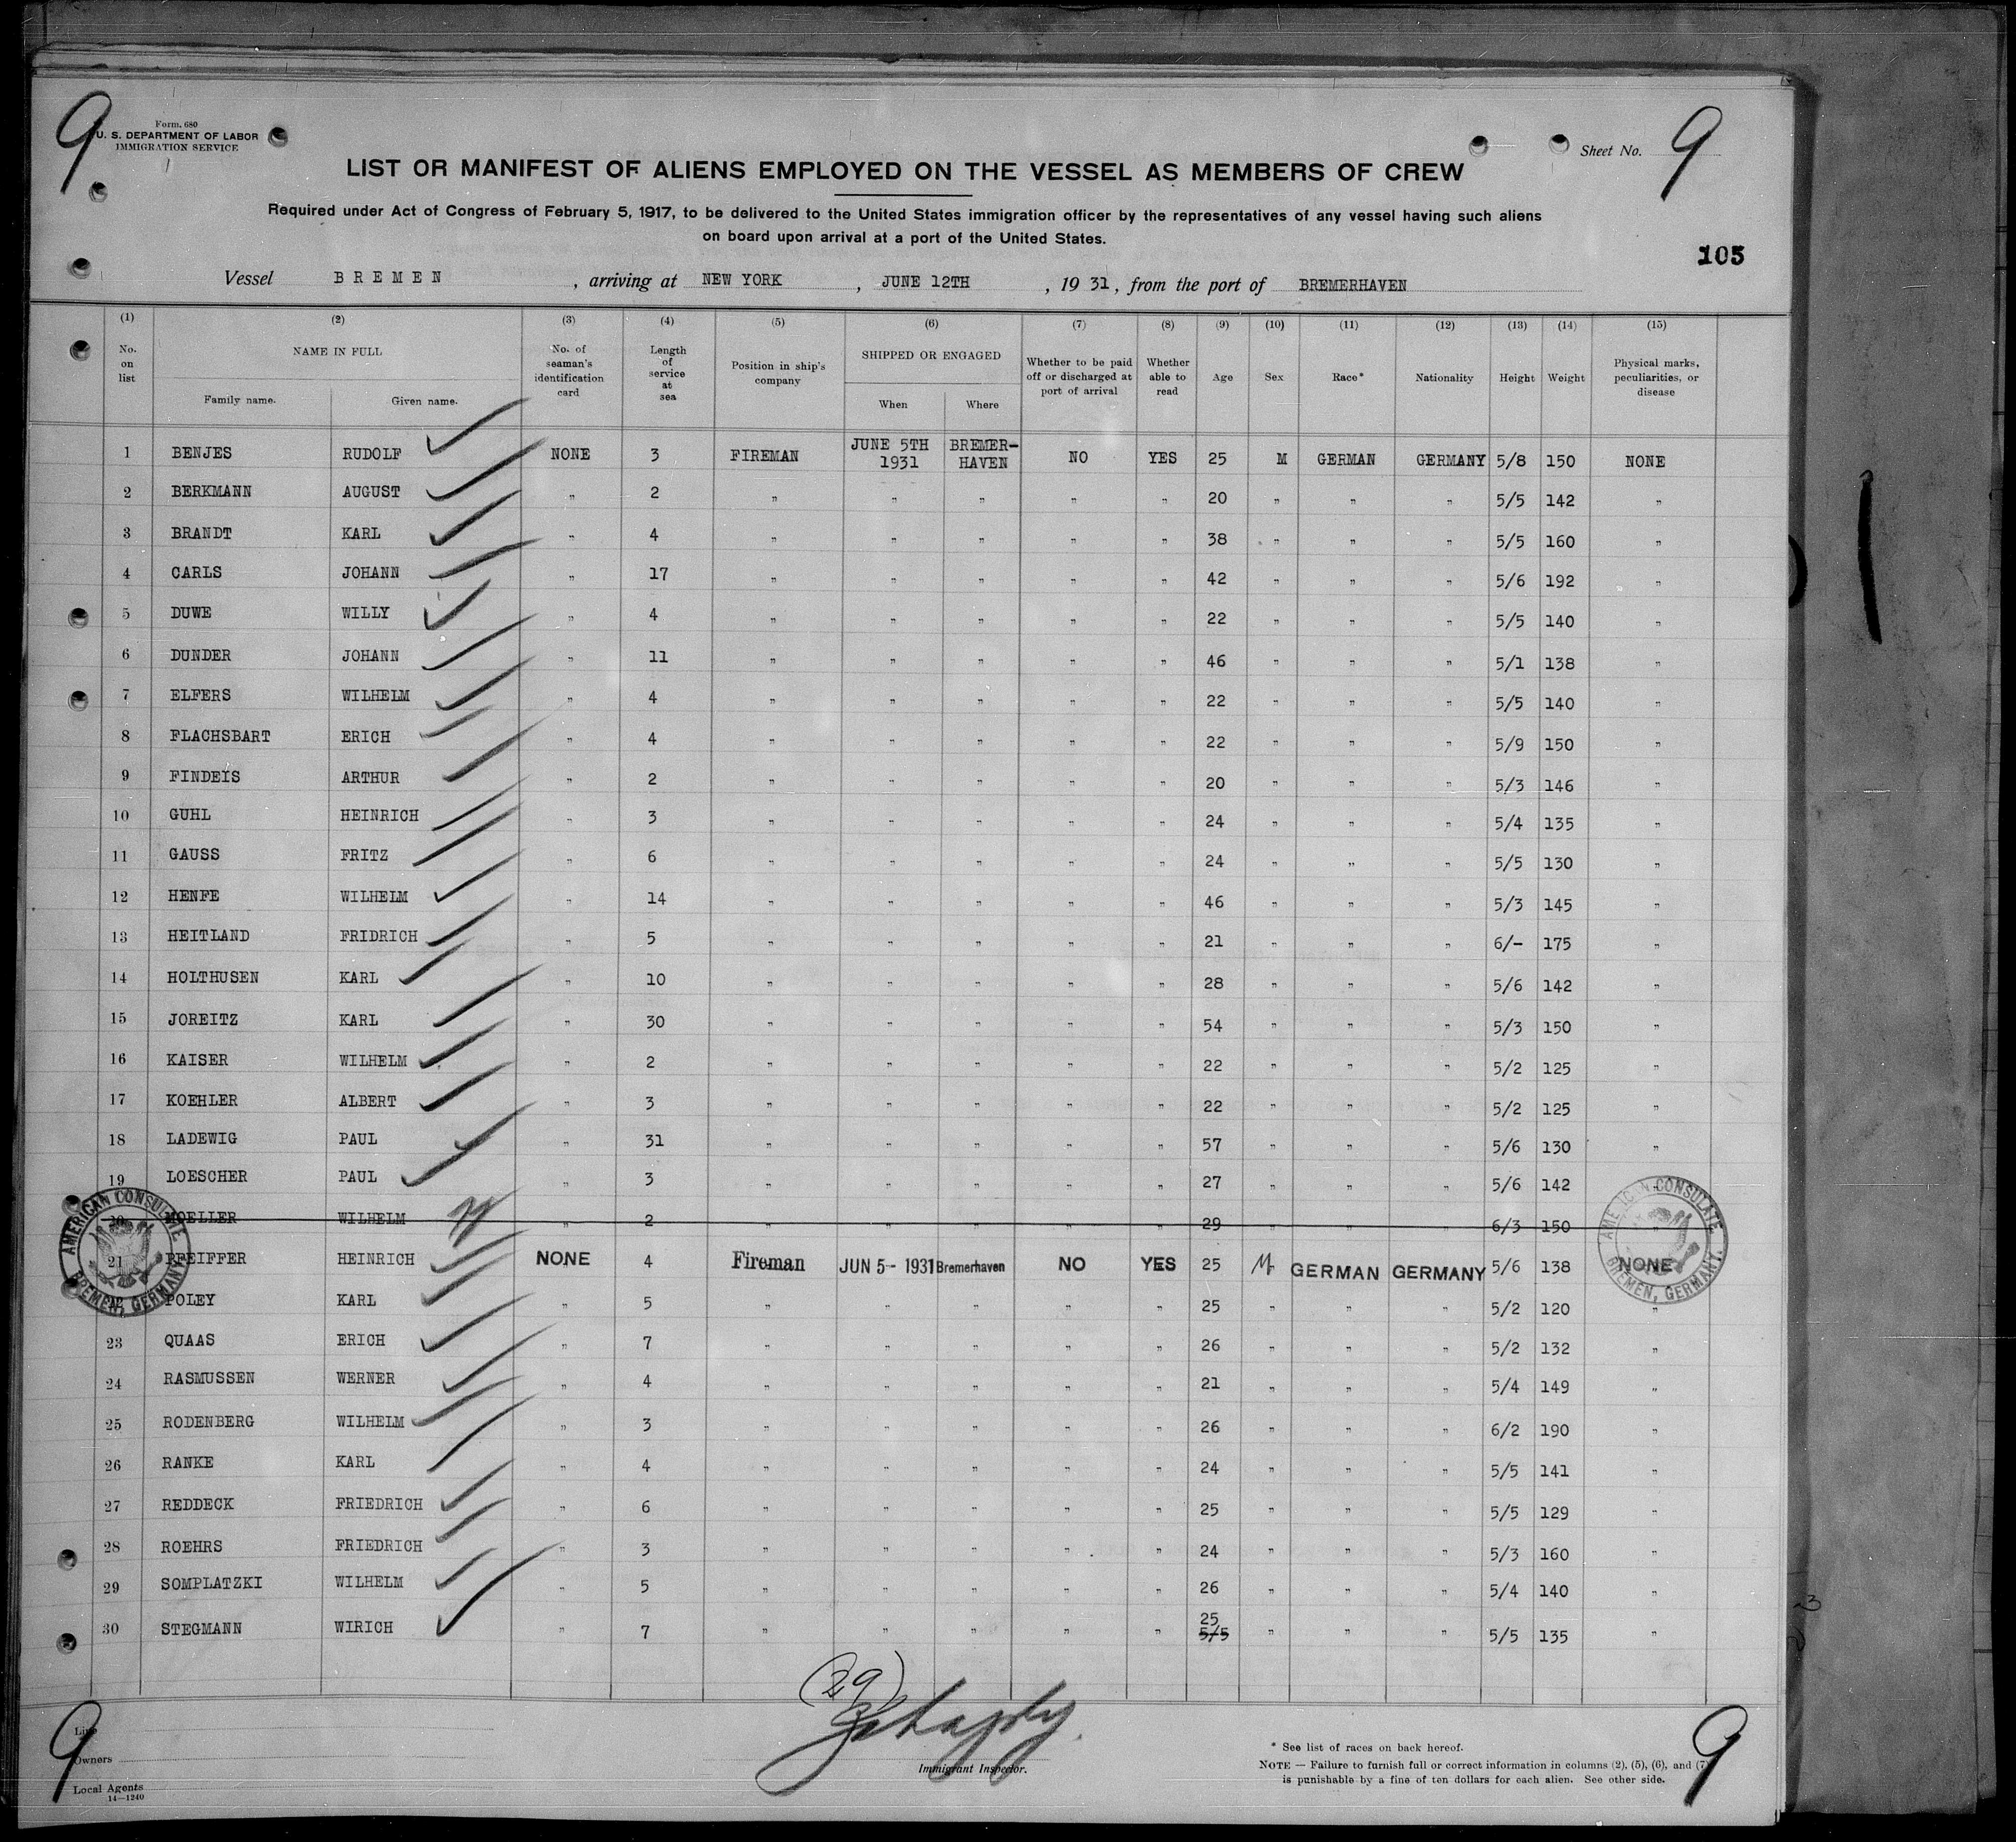 9
Form. 680
U. S. DEPARTMENT OF LABOR
IMMIGRATION SERVICE
Sheet No. 9
LIST OR MANIFEST OF ALIENS EMPLOYED ON THE VESSEL AS MEMBERS OF CREW
Required under Act of Congress of February 5, 1917, to be delivered to the United States immigration officer by the representatives of any vessel having such aliens
on board upon arrival at a port of the United States.
105
Vessel BREMEN, arriving at NEW YORK, JUNE 12TH, 1931, from the port of BREMERHAVEN
(1) (2) (3) (4) (5) (6) (7) (8) (9) (10) (11) (12) (13) (14) (15)
No. on list NAME IN FULL Family name. Given name. No. of seaman's identification card Length of service at sea Position in ship's company SHIPPED OR ENGAGED When Where Whether to be paid off or discharged at port of arrival Whether able to read Age Sex Race* Nationality Height Weight Physical marks, peculiarities, or disease
1 BENJES RUDOLF NONE 3 FIREMAN JUNE 5TH 1931 BREMER-HAVEN NO YES 25 M GERMAN GERMANY 5/8 150 NONE
2 BERKMANN AUGUST " 2 " " " " " 20 " " " 5/5 142 "
3 BRANDT KARL " 4 " " " " " 38 " " " 5/5 160 "
4 CARLS JOHANN " 17 " " " " " 42 " " " 5/6 192 "
5 DUWE WILLY " 4 " " " " " 22 " " " 5/5 140 "
6 DUNDER JOHANN " 11 " " " " " 46 " " " 5/1 138 "
7 ELFERS WILHELM " 4 " " " " " 22 " " " 5/5 140 "
8 FLACHSBART ERICH " 4 " " " " " 22 " " " 5/9 150 "
9 FINDEIS ARTHUR " 2 " " " " " 20 " " " 5/3 146 "
10 GUHL HEINRICH " 3 " " " " " 24 " " " 5/4 135 "
11 GAUSS FRITZ " 6 " " " " " 24 " " " 5/5 130 "
12 HENFE WILHELM " 14 " " " " " 46 " " " 5/3 145 "
13 HEITLAND FRIDRICH " 5 " " " " " 21 " " " 6/- 175 "
14 HOLTHUSEN KARL " 10 " " " " " 28 " " " 5/6 142 "
15 JOREITZ KARL " 30 " " " " " 54 " " " 5/3 150 "
16 KAISER WILHELM " 2 " " " " " 22 " " " 5/2 125 "
17 KOEHLER ALBERT " 3 " " " " " 22 " " " 5/2 125 "
18 LADEWIG PAUL " 31 " " " " " 57 " " " 5/6 130 "
19 LOESCHER PAUL " 3 " " " " " 27 " " " 5/6 142 "
20 MOELLER WILHELM " 2 " " " " " 29 " " " 6/3 150
21 PFEIFFER HEINRICH NONE 4 Fireman JUN 5- 1931 Bremerhaven NO YES 25 M GERMAN GERMANY 5/6 138 NONE
22 POLEY KARL " 5 " " " " " 25 " " " 5/2 120 "
23 QUAAS ERICH " 7 " " " " " 26 " " " 5/2 132 "
24 RASMUSSEN WERNER " 4 " " " " " 21 " " " 5/4 149 "
25 RODENBERG WILHELM " 3 " " " " " 26 " " " 6/2 190 "
26 RANKE KARL " 4 " " " " " 24 " " " 5/5 141 "
27 REDDECK FRIEDRICH " 6 " " " " " 25 " " " 5/5 129 "
28 ROEHRS FRIEDRICH " 3 " " " " " 24 " " " 5/3 160 "
29 SOMPLATZKI WILHELM " 5 " " " " " 26 " " " 5/4 140 "
30 STEGMANN WIRICH " 7 " " " " " 25 5/5 " " " 5/5 135 "
AMERICAN CONSULATE BREMEN, GERMANY.
AMERICAN CONSULATE BREMEN, GERMANY.
(29)
Immigrant Inspector.
9
Line
Owners
Local Agents
14—1240
* See list of races on back hereof.
NOTE — Failure to furnish full or correct information in columns (2), (5), (6), and (7)
is punishable by a fine of ten dollars for each alien. See other side.
9